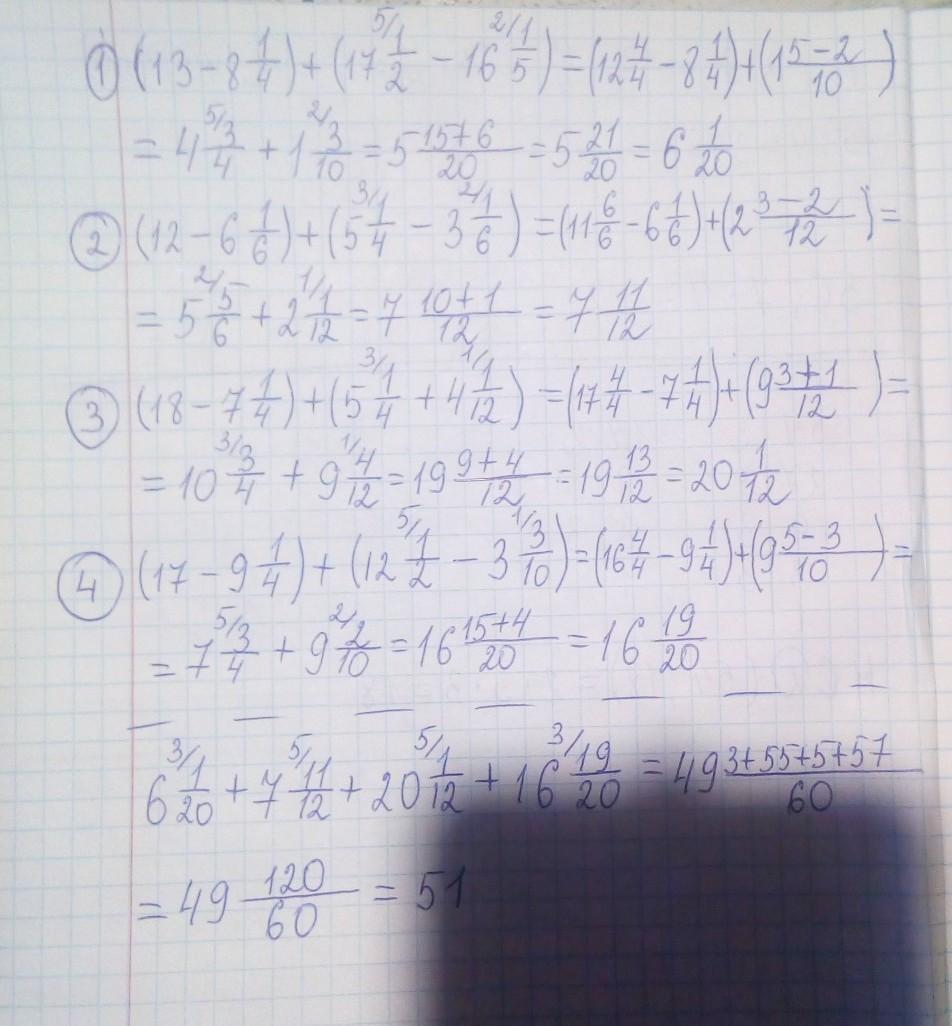 1 (13 - 8 1/4) + (17 5/ 1/2 - 16 2/ 1/5) = (12 4/4 - 8 1/4) + (1 5-2/10)
= 4 5/ 3/4 + 1 2/ 3/10 = 5 15+6/20 = 5 21/20 = 6 1/20
2 (12 - 6 1/6) + (5 3/ 1/4 - 3 2/ 1/6) = (11 6/6 - 6 1/6) + (2 3-2/12) =
= 5 2/ 5/6 + 2 1/ 1/12 = 7 10+1/12 = 7 11/12
3 (18 - 7 1/4) + (5 3/ 1/4 + 4 1/ 1/12) = (17 4/4 - 7 1/4) + (9 3+1/12) =
= 10 3/ 3/4 + 9 1/ 4/12 = 19 9+4/12 = 19 13/12 = 20 1/12
4 (17 - 9 1/4) + (12 5/ 1/2 - 3 1/ 3/10) = (16 4/4 - 9 1/4) + (9 5-3/10) =
= 7 5/ 3/4 + 9 2/ 2/10 = 16 15+4/20 = 16 19/20
6 3/ 1/20 + 7 5/ 11/12 + 20 5/ 1/12 + 16 3/ 19/20 = 49 3+55+5+57/60
= 49 120/60 = 51